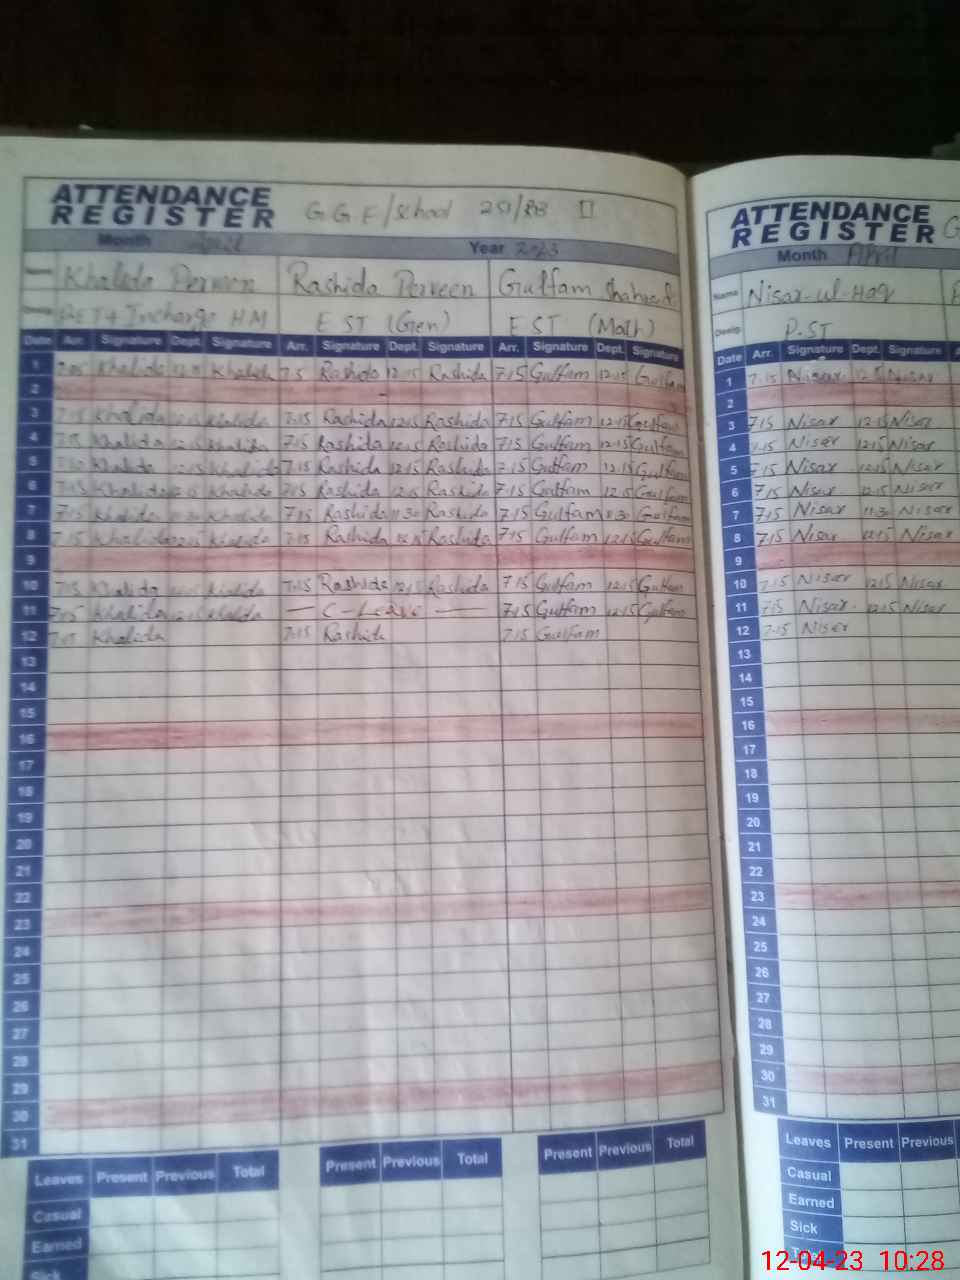 ATTENDANCE
REGISTER G G E/school 251/RB II
Month April Year 2023
Name Khalida Perveen Rashida Perveen Gulfam
Desig. Incharge HM EST (Gen) EST (Math)
Date Arr. Signature Dept. Signature Arr. Signature Dept. Signature Arr. Signature Dept. Signature
1 Khalida Khalida 7.5 Rashida 12.15 Rashida 7.15 Gulfam 12.15 Gulfam
2
3 7.15 Khalida Khalida 7.15 Rashida 12.15 Rashida 7.15 Gulfam 12.15 Gulfam
4 7.15 Khalida 12.15 Khalida 7.15 Rashida 12.15 Rashida 7.15 Gulfam 12.15 Gulfam
5 Khalida 12.15 Khalida 7.15 Rashida 12.15 Rashida 7.15 Gulfam 12.15 Gulfam
6 7.15 Khalida Khalida 7.15 Rashida 12.15 Rashida 7.15 Gulfam 12.15 Gulfam
7 7.15 Khalida 11.30 Khalida 7.15 Rashida 11.30 Rashida 7.15 Gulfam 11.30 Gulfam
8 7.15 Khalida Khalida 7.15 Rashida 12.15 Rashida 7.15 Gulfam 12.15 Gulfam
9
10 7.15 Khalida Khalida 7.15 Rashida 12.15 Rashida 7.15 Gulfam 12.15 Gulfam
11 7.15 Khalida Khalida — C-Leave — 7.15 Gulfam 12.15 Gulfam
12 7.15 Khalida 7.15 Rashida 7.15 Gulfam
13
14
15
16
17
18
19
20
21
22
23
24
25
26
27
28
29
30
31
Leaves Present Previous Total Present Previous Total Present Previous Total
Casual
Earned
Sick
ATTENDANCE
REGISTER G
Month April
Name Nisar-ul-Haq
Desig. P.ST
Date Arr. Signature Dept. Signature
1 7.15 Nisar 12.15 Nisar
2
3 7.15 Nisar 12.15 Nisar
4 7.15 Nisar 12.15 Nisar
5 7.15 Nisar 12.15 Nisar
6 7.15 Nisar 12.15 Nisar
7 7.15 Nisar 11.30 Nisar
8 7.15 Nisar 12.15 Nisar
9
10 7.15 Nisar 12.15 Nisar
11 7.15 Nisar 12.15 Nisar
12 7.15 Nisar
13
14
15
16
17
18
19
20
21
22
23
24
25
26
27
28
29
30
31
Leaves Present Previous
Casual
Earned
Sick
12-04-23 10:28